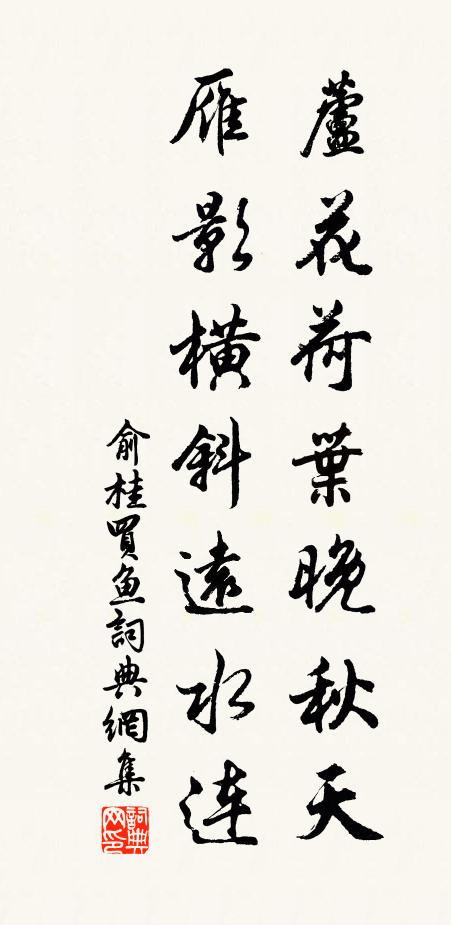 蘆花荷葉晚秋天
雁影橫斜遠水連
俞桂買魚詞典網集
詞典網印